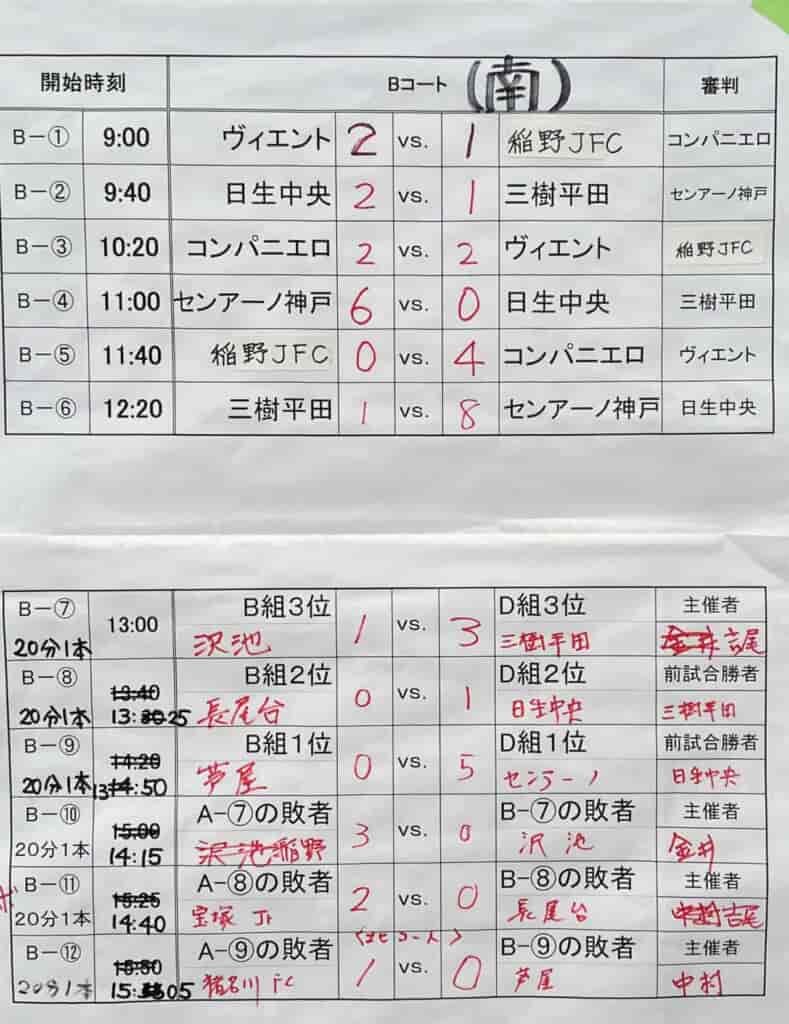 開始時刻 Bコート (南) 審判
B-① 9:00 ヴィエント 2 vs. 1 稲野JFC コンパニエロ
B-② 9:40 日生中央 2 vs. 1 三樹平田 センアーノ神戸
B-③ 10:20 コンパニエロ 2 vs. 2 ヴィエント 稲野JFC
B-④ 11:00 センアーノ神戸 6 vs. 0 日生中央 三樹平田
B-⑤ 11:40 稲野JFC 0 vs. 4 コンパニエロ ヴィエント
B-⑥ 12:20 三樹平田 1 vs. 8 センアーノ神戸 日生中央
B-⑦ 13:00 B組3位 1 vs. 3 D組3位 主催者
20分1本 沢池 三樹平田 金井 吉尾
B-⑧ 13:40 B組2位 0 vs. 1 D組2位 前試合勝者
20分1本 13:25 長尾台 日生中央 三樹平田
B-⑨ 14:20 B組1位 0 vs. 5 D組1位 前試合勝者
20分1本 13:50 芦屋 センアーノ 日生中央
B-⑩ 15:00 A-⑦の敗者 3 vs. 0 B-⑦の敗者 主催者
20分1本 14:15 沢池 稲野 沢池 金井
B-⑪ 15:25 A-⑧の敗者 2 vs. 0 B-⑧の敗者 主催者
20分1本 14:40 宝塚Jr 長尾台 中村 吉尾
B-⑫ 15:50 A-⑨の敗者 1 vs. 0 B-⑨の敗者 主催者
20分1本 15:05 猪名川FC 芦屋 中村